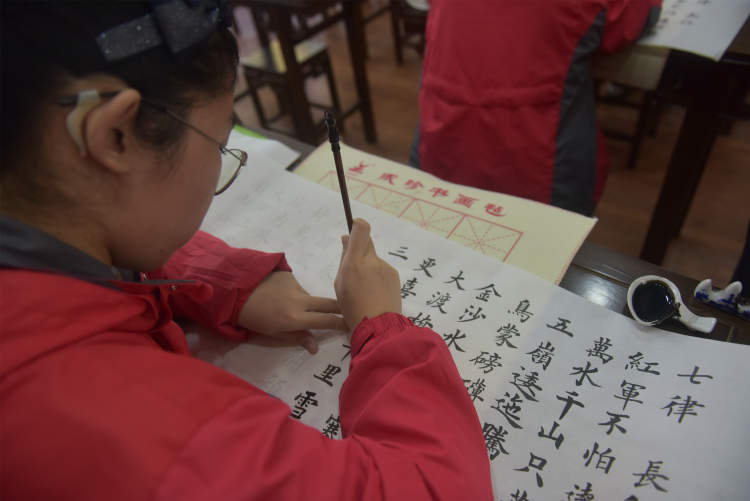 珍书画毡
七律
長
紅軍不怕遠
萬水千山只
五嶺逶迤騰
烏蒙磅礴
金沙水
大渡
更喜
里雪
三